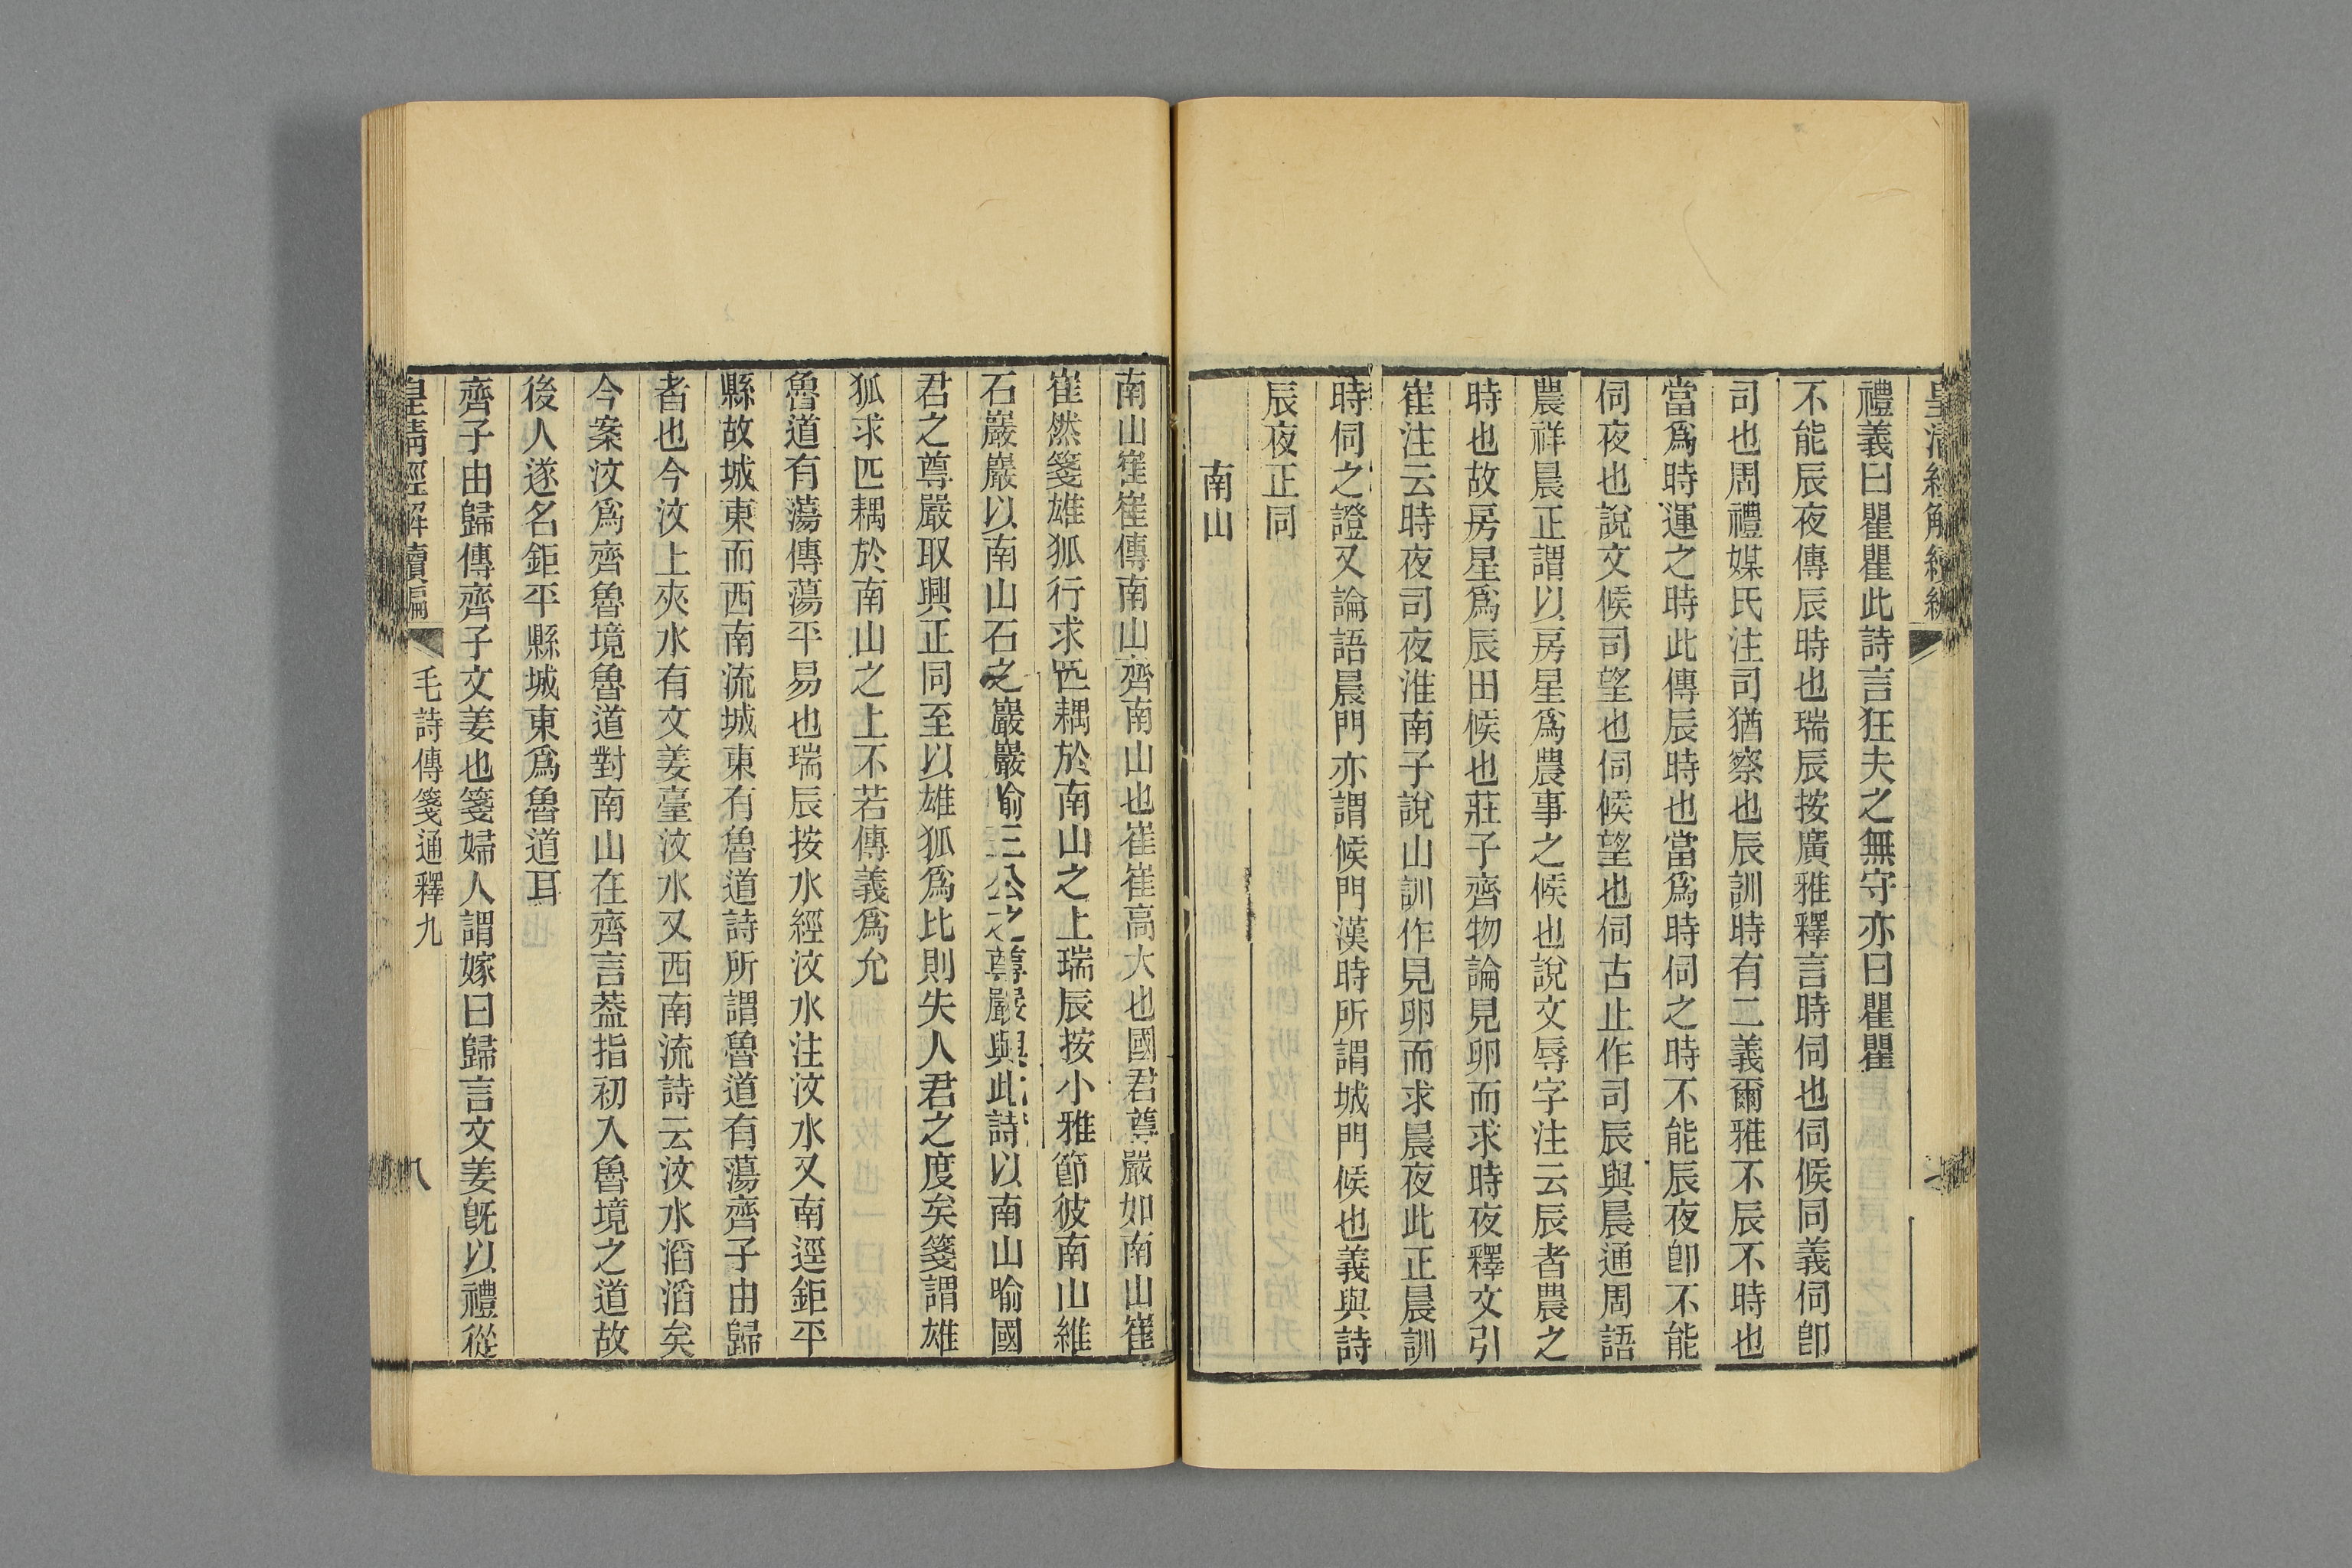 皇清經解續編
禮義曰瞿瞿此詩言狂夫之無守亦曰瞿瞿
不能辰夜傳辰時也瑞辰按廣雅釋言時伺也伺候同義伺卽
司也周禮媒氏注司猶察也辰訓時有二義爾雅不辰不時也
當爲時運之時此傳辰時也當爲時伺之時不能辰夜卽不能
伺夜也說文候司望也伺候望也伺古止作司辰與晨通周語
農祥晨正謂以房星爲農事之候也說文辱字注云辰者農之
時也故房星爲辰田候也莊子齊物論見卵而求時夜釋文引
崔注云時夜司夜淮南子說山訓作見卵而求晨夜此正晨訓
時伺之證又論語晨門亦謂候門漢時所謂城門候也義與詩
辰夜正同
南山
南山崔崔傳南山齊南山也崔崔高大也國君尊嚴如南山崔
崔然箋雄狐行求匹耦於南山之上瑞辰按小雅節彼南山維
石巖巖以南山石之巖巖喻三公之尊嚴與此詩以南山喻國
君之尊嚴取興正同至以雄狐爲比則失人君之度矣箋謂雄
狐求匹耦於南山之上不若傳義爲允
魯道有蕩傳蕩平易也瑞辰按水經汶水注汶水又南逕鉅平
縣故城東而西南流城東有魯道詩所謂魯道有蕩齊子由歸
者也今汶上夾水有文姜臺汶水又西南流詩云汶水滔滔矣
今案汶爲齊魯境魯道對南山在齊言葢指初入魯境之道故
後人遂名鉅平縣城東爲魯道耳
齊子由歸傳齊子文姜也箋婦人謂嫁曰歸言文姜旣以禮從
皇清經解續編
毛詩傳箋通釋九
八